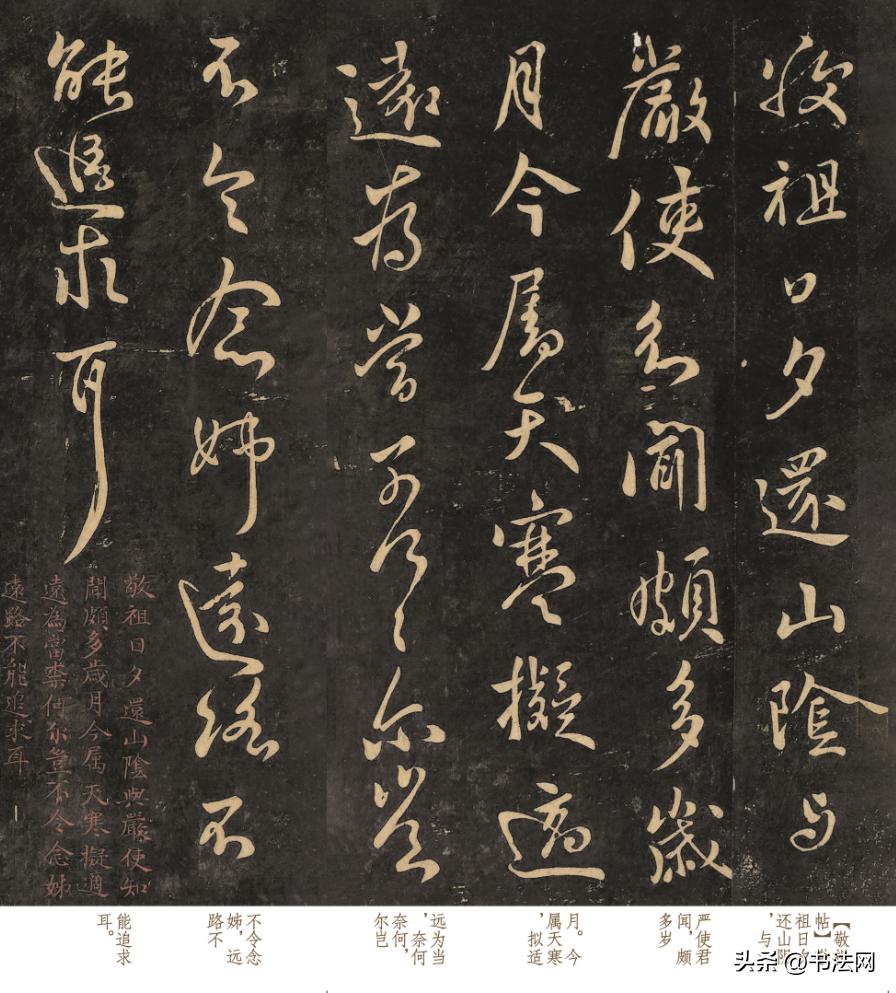 敬祖日夕還山陰与
嚴使君聞頗多歲
月今属天寒擬適
遠為當奈何奈何尔豈
不令念姊遠路不
能追求耳
敬祖日夕還山陰與嚴使知
聞頗多歲月今属天寒擬適
遠為當柰何尔豈不令念姊
遠路不能追求耳
【敬
帖】
祖日夕
还山阴
，与
严使君
闻，颇
多岁
月。今
属天寒
，拟适
远为当
，奈何
奈何，
尔岂
不令念
姊，远
路不
能追求
耳。
头条 @书法网